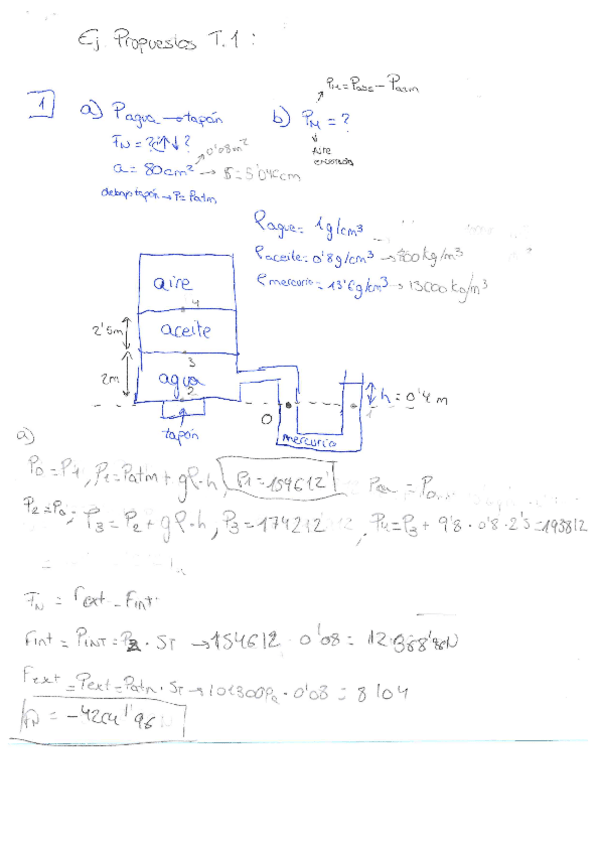 Ej. Propuestos T.1 :
1
a) Pagua → tapón
F_N = ? ¿↑↓?
a = 80cm² → r = 5'046cm
0'08m²
debajo tapón → P = Patm
b) P_M = ?
P_M = Pabs - Patm
aire
encerrado
ρagua = 1g/cm³
ρaceite = 0'8g/cm³ → 800kg/m³
ρmercurio = 13'6g/cm³ → 13000kg/m³
aire
4
2'5m
aceite
3
2m
agua
2
h = 0'4 m
0
1
tapón
mercurio
a)
P0 = P1, P1 = Patm + gρ·h, P1 = 154612
P2 = P0; P3 = P2 + gρ·h, P3 = 174212, P4 = P3 + 9'8 · 0'8 · 2'5 = 193812
F_N = Fext - Fint
Fint = PINT = P2 · ST → 154612 · 0'08 = 12.368'96N
Fext = Pext = Patm · ST → 101300Pa · 0'08 = 8104
F_N = -4264'96 N